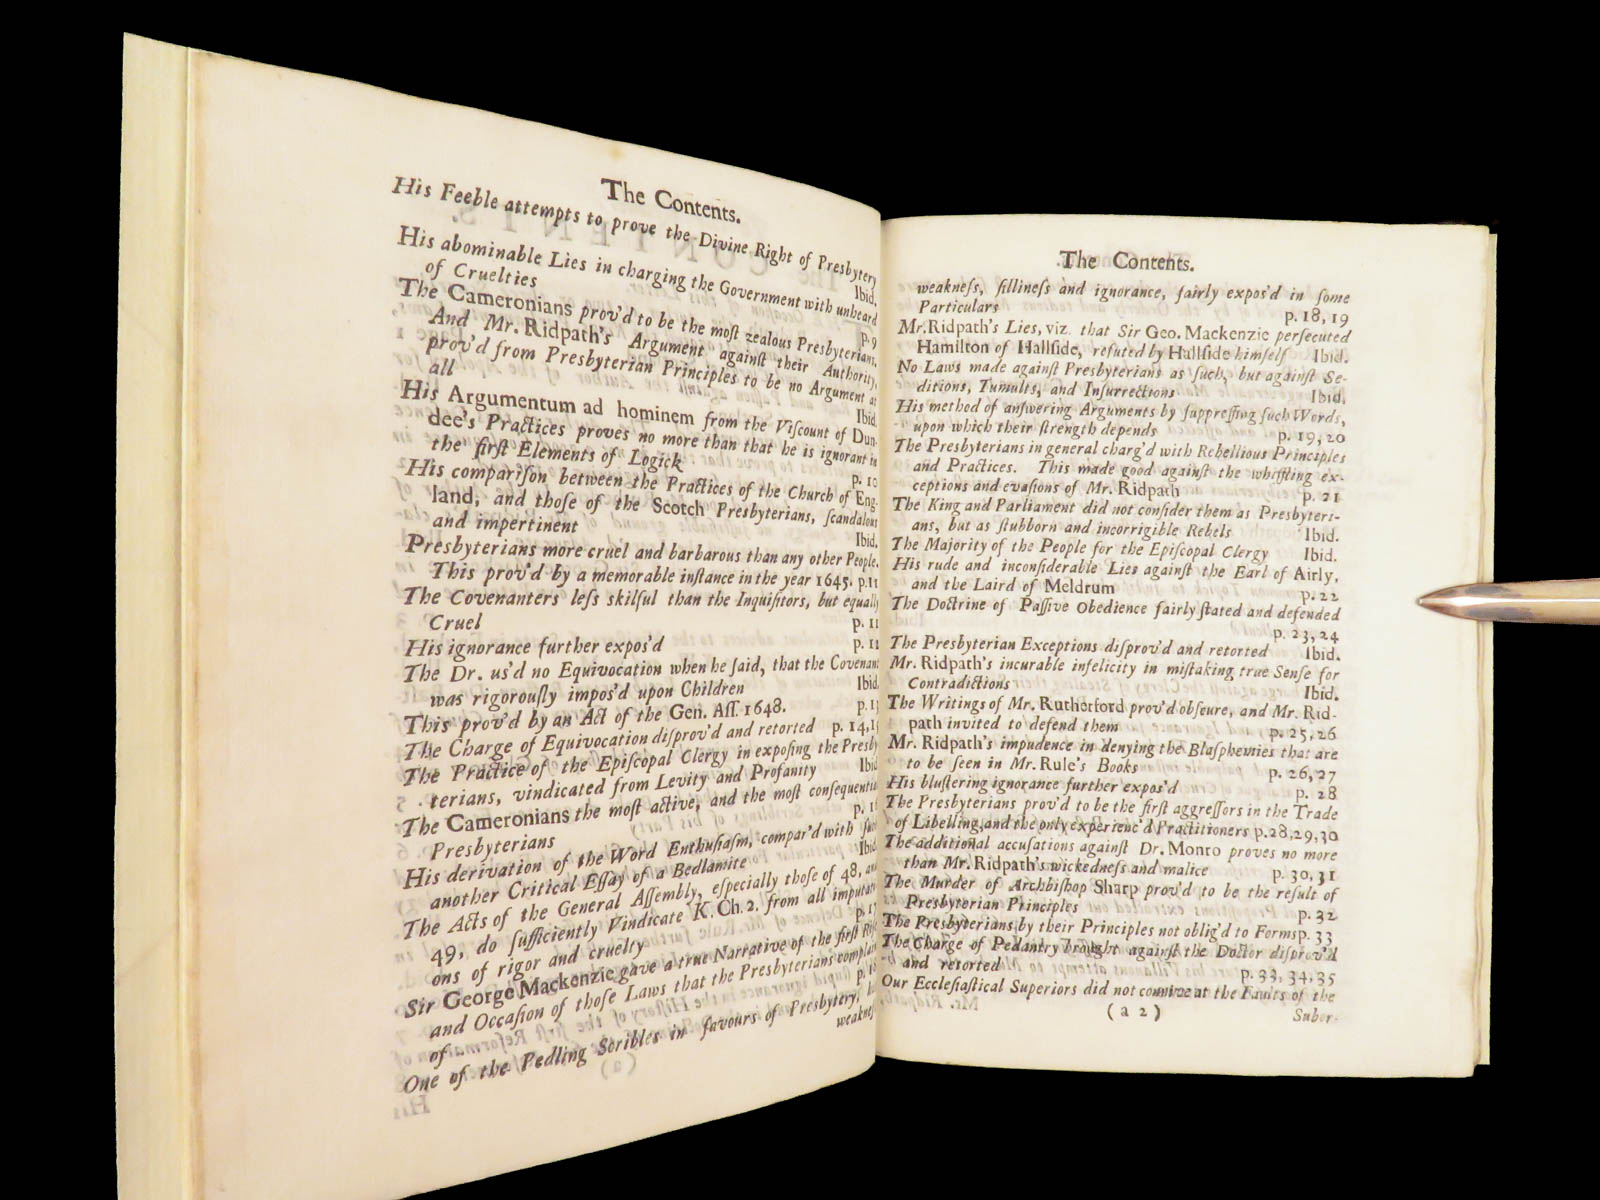 The Contents.
His Feeble attempts to prove the Divine Right of Presbytery
Ibid.
His abominable Lies in charging the Government with unheard
of Cruelties p. 9
The Cameronians prov'd to be the moſt zealous Presbyterians,
And Mr. Ridpath's Argument againſt their Authority,
prov'd from Presbyterian Principles to be no Argument at
all Ibid.
His Argumentum ad hominem from the Viſcount of Dun-
dee's Practices proves no more than that he is ignorant in
the firſt Elements of Logick p. 10
His compariſon between the Practices of the Church of Eng-
land, and thoſe of the Scotch Presbyterians, ſcandalous
and impertinent Ibid.
Presbyterians more cruel and barbarous than any other People.
This prov'd by a memorable inſtance in the year 1645. p. 11
The Covenanters leſs skilful than the Inquiſitors, but equally
Cruel p. 11
His ignorance further expos'd p. 12
The Dr. us'd no Equivocation when he ſaid, that the Covenant
was rigorouſly impos'd upon Children Ibid.
This prov'd by an Act of the Gen. Aſſ. 1648. p. 1
The Charge of Equivocation diſprov'd and retorted p. 14, 1
The Practice of the Epiſcopal Clergy in expoſing the Presby
terians, vindicated from Levity and Profanity Ibid
The Cameronians the moſt active, and the moſt consequentia
Presbyterians p. 1
His derivation of the Word Enthuſiaſm, compar'd with ſuch
another Critical Eſſay of a Bedlamite Ibid.
The Acts of the General Aſſembly, eſpecially thoſe of 48, and
49, do ſufficiently Vindicate K. Ch. 2. from all imputati
ons of rigor and cruelty p. 17
Sir George Mackenzie gave a true Narrative of the firſt Riſe
and Occaſion of thoſe Laws that the Presbyterians complain
of p. 18
One of the Pedling Scribles in favours of Presbytery,
weakneſ
The Contents.
weakneſs, ſillineſs and ignorance, fairly expos'd in ſome
Particulars p. 18, 19
Mr. Ridpath's Lies, viz. that Sir Geo. Mackenzie perſecuted
Hamilton of Hallſide, refuted by Hallſide himſelf Ibid.
No Laws made againſt Presbyterians as ſuch, but againſt Se-
ditions, Tumults, and Inſurrections Ibid.
His method of anſwering Arguments by ſuppreſſing ſuch Words,
upon which their ſtrength depends p. 19, 20
The Presbyterians in general charg'd with Rebellious Principles
and Practices. This made good againſt the whiſtling ex-
ceptions and evaſions of Mr. Ridpath p. 21
The King and Parliament did not conſider them as Presbyteri-
ans, but as ſtubborn and incorrigible Rebels Ibid.
The Majority of the People for the Epiſcopal Clergy Ibid.
His rude and inconſiderable Lies againſt the Earl of Airly,
and the Laird of Meldrum p. 22
The Doctrine of Paſſive Obedience fairly ſtated and defended
p. 23, 24
The Presbyterian Exceptions diſprov'd and retorted Ibid.
Mr. Ridpath's incurable infelicity in miſtaking true Senſe for
Contradictions Ibid.
The Writings of Mr. Rutherford prov'd obſcure, and Mr. Rid-
path invited to defend them p. 25, 26
Mr. Ridpath's impudence in denying the Blaſphemies that are
to be ſeen in Mr. Rule's Books p. 26, 27
His bluſtering ignorance further expos'd p. 28
The Presbyterians prov'd to be the firſt aggreſſors in the Trade
of Libelling, and the only experienc'd Practitioners p. 28, 29, 30
The additional accuſations againſt Dr. Monro proves no more
than Mr. Ridpath's wickedneſs and malice p. 30, 31
The Murder of Archbiſhop Sharp prov'd to be the reſult of
Presbyterian Principles p. 32
The Presbyterians by their Principles not oblig'd to Forms p. 33
The Charge of Pedantry brought againſt the Doctor diſprov'd
and retorted p. 33, 34, 35
Our Eccleſiaſtical Superiors did not connive at the Faults of the
(a 2) Subor-